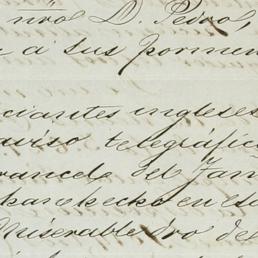 nrol D. Pedro,
a sus pormen
ciantes ingleses
aviso telegráfic
rancel del Jan
han hecho en es
miserable oro de